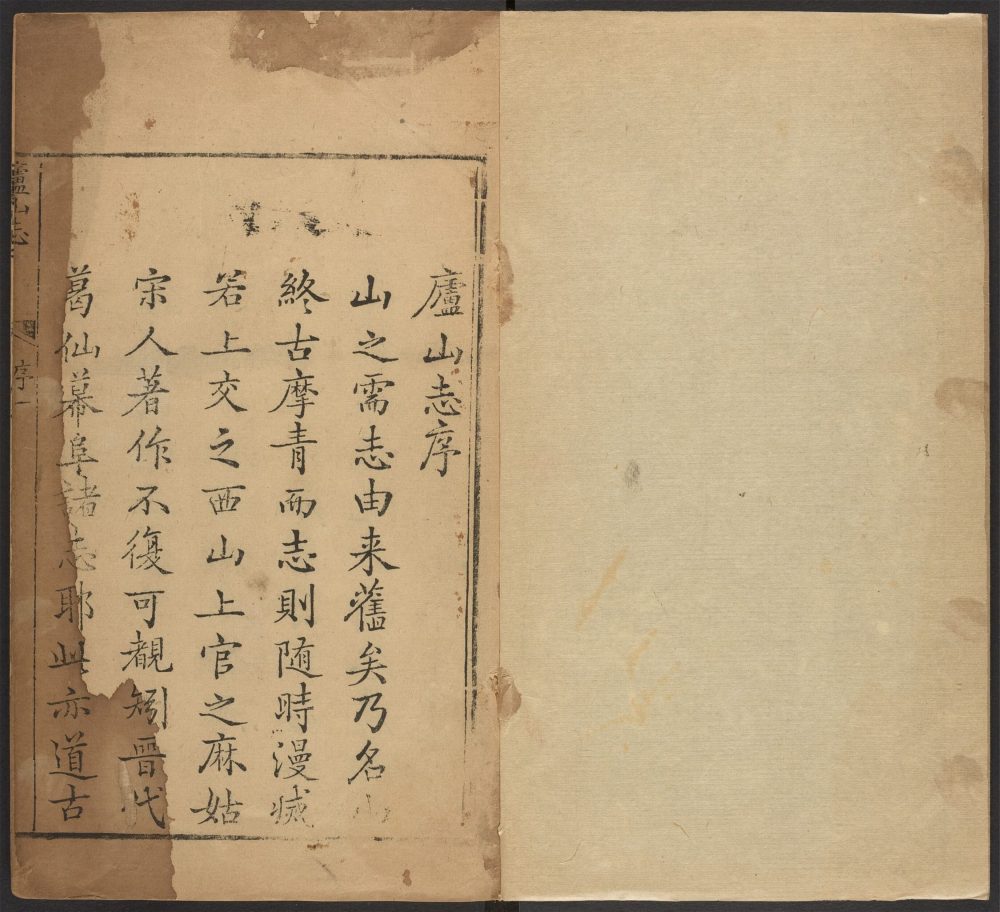 廬山志序
山之需志由来舊矣乃名山
終古摩青而志則随時漫滅
若上交之西山上官之麻姑
宋人著作不復可覩矧晉代
葛仙幕阜諸志耶此亦道古
廬山志
序一